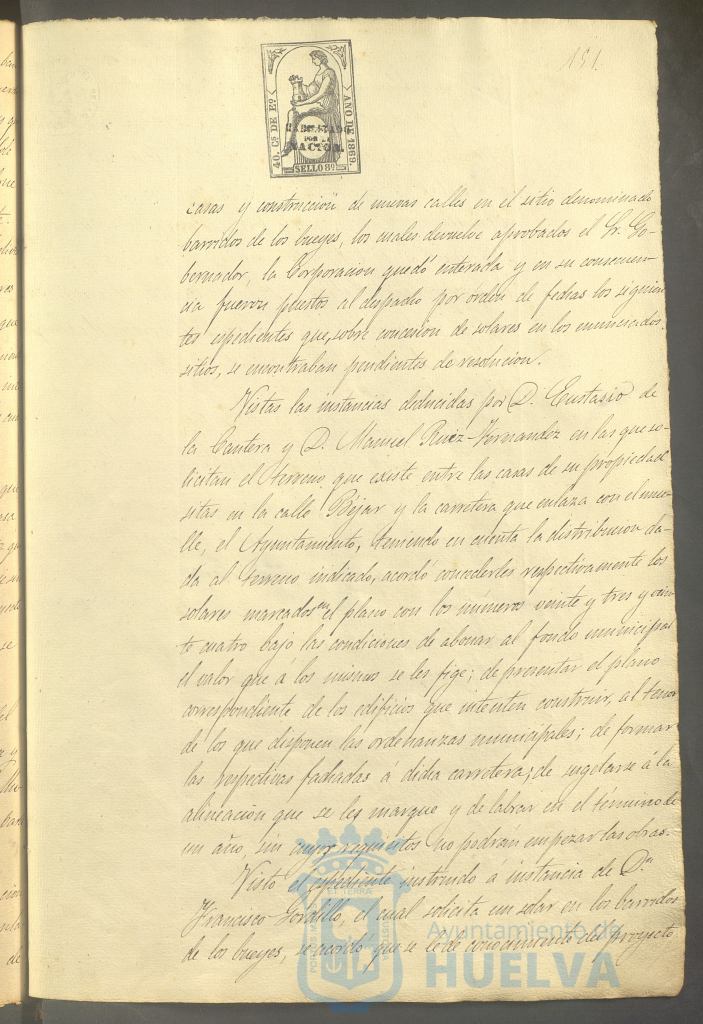 191.
40. Cs DE Eo.
AÑO DE 1869.
HABILITADO
POR LA
NACION.
SELLO 8º
casas y construccion de nuevas calles en el sitio denominado
barridos de los bueyes, los cuales devuelve aprobados el Sr. Go-
bernador, la Corporacion quedó enterada y en su consecuen-
cia fueron puestos al despacho por orden de fechas los siguien-
tes espedientes que, sobre concesion de solares en los enunciados
sitios, se encontraban pendientes de resolucion.
Vistas las instancias deducidas por D. Eustasio de
la Cantera y D. Manuel Ruiz Fernandez en las que so-
licitan el terreno que existe entre las casas de su propiedad
sitas en la calle Béjar y la carretera que enlaza con el mue-
lle, el Ayuntamiento, teniendo en cuenta la distribucion da-
da al terreno indicado, acordó concederles respectivamente los
solares marcados en el plano con los números veinte y tres y vein-
te cuatro bajo las condiciones de abonar al fondo municipal
el valor que á los mismos se les fige; de presentar el plano
correspondiente de los edificios que intenten construir, al tenor
de los que disponen las ordenanzas municipales; de formar
las respectivas fachadas á dicha carretera; de sugetarse á la
alineacion que se les marque y de labrar en el término de
un año, sin cuyos requisitos no podran empezar las obras.
Visto el espediente instruido á instancia de Dn
Francisco Gordillo, el cual solicita un solar en los barridos
de los bueyes, se acordó que se le dé conocimiento del proyecto
Ayuntamiento de
HUELVA